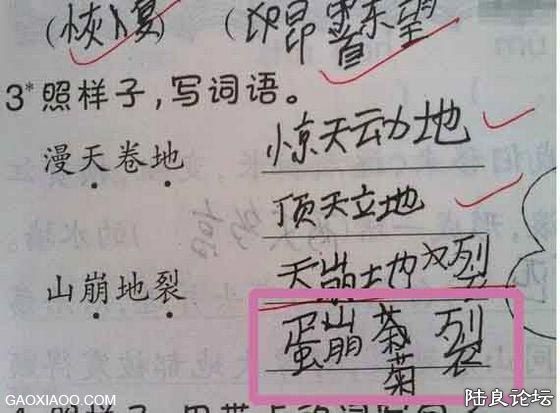 (恢复) (昂首东望
3*照样子,写词语。
漫天卷地 惊天动地
顶天立地
山崩地裂 天崩地裂
蛋崩菊裂
GAOXIAOO.COM
陆良论坛